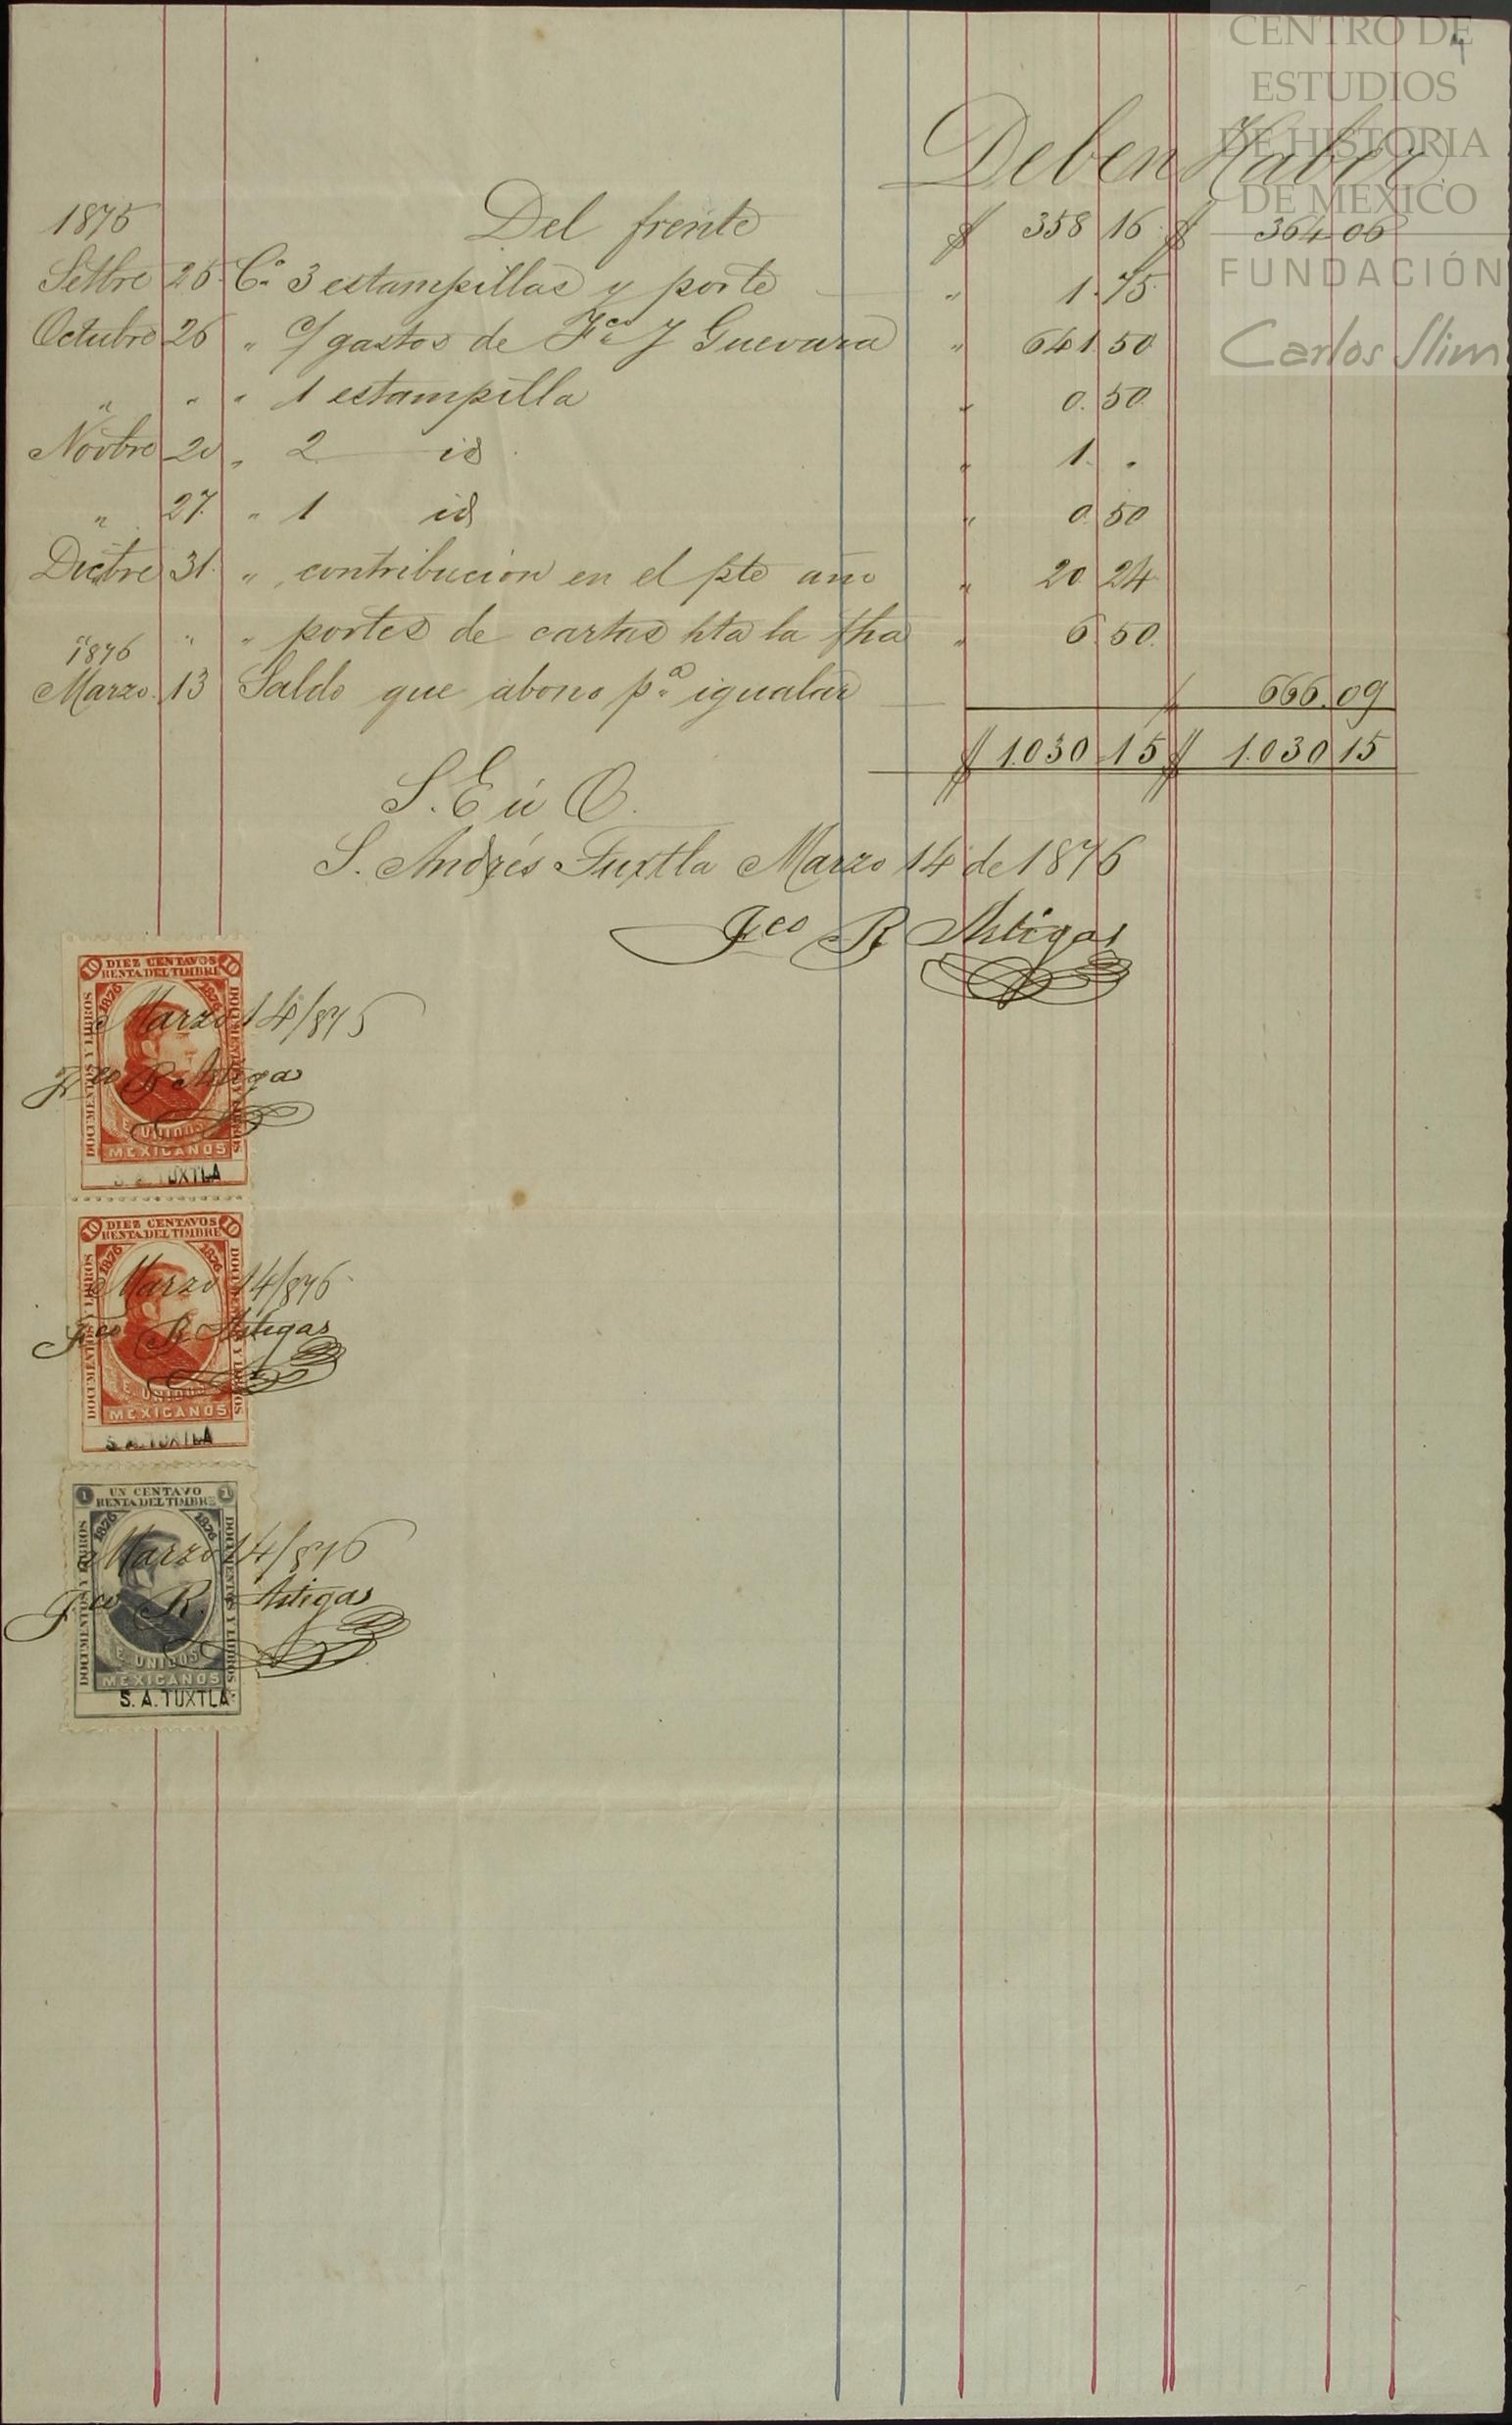 4
CENTRO DE
ESTUDIOS
DE HISTORIA
DE MEXICO
FUNDACIÓN
Carlos Slim
Deben Haber
1875 Del frente $ 358 16 $ 364 06
Setbre 25 Co 3 estampillas y porte " 1.75
Octubre 26 " c/ gastos de Fco J Guevara " 641.50
" " " 1 estampilla " 0.50
Novbre 20 " 2 id " 1. "
" 27 " 1 id " 0.50
Dicbre 31 " contribucion en el pte año " 20 24
" " " portes de cartas hta la fha " 6.50
1876
Marzo 13 Saldo que abono pa igualar " 666.09
$ 1.030 15 $ 1.030 15
S. E ú O.
S. Andrés Tuxtla Marzo 14 de 1876
Fco R Artigas
10 DIEZ CENTAVOS 10
RENTA DEL TIMBRE
1876 1876
DOCUMENTOS Y LIBROS
DOCUMENTOS Y LIBROS
Marzo 14/875
Fco R Artigas
E. UNIDOS
MEXICANOS
S. A. TUXTLA
10 DIEZ CENTAVOS 10
RENTA DEL TIMBRE
1876 1876
DOCUMENTOS Y LIBROS
DOCUMENTOS Y LIBROS
Marzo 14/876
Fco R Artigas
E. UNIDOS
MEXICANOS
S. A. TUXTLA
1 UN CENTAVO 1
RENTA DEL TIMBRE
1876 1876
DOCUMENTOS Y LIBROS
DOCUMENTOS Y LIBROS
Marzo 14/876
Fco R. Artigas
E. UNIDOS
MEXICANOS
S. A. TUXTLA